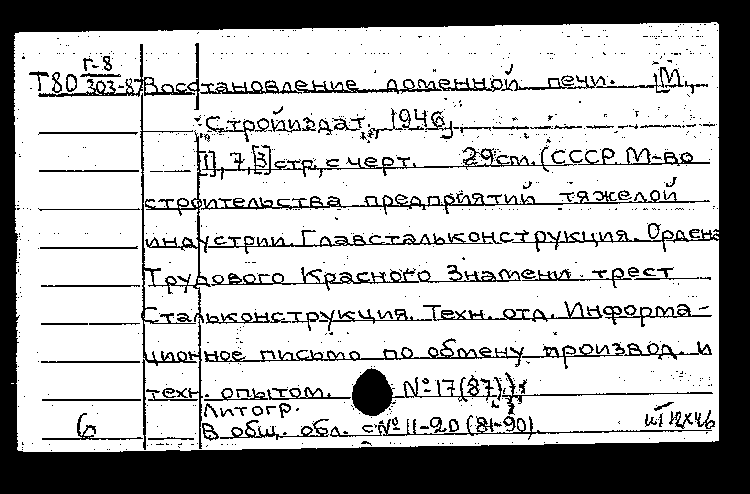 Г-8
Т80 303-87 Восстановление доменной печи. [М.,
Стройиздат, 1946],
[1], 7, [3] стр, с черт. 29см. (СССР. М-во
строительства предприятий тяжелой
индустрии. Главстальконструкция. Ордена
Трудового Красного Знамени трест
Стальконструкция. Техн. отд. Информа-
ционное письмо по обмену производ. и
техн. опытом. № 17(87))
Литогр.
6 В общ. обл. с № 11-20 (81-90).